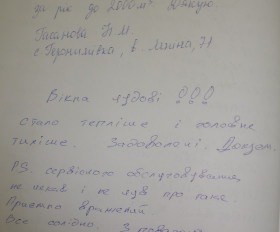 за рік до 2000 м³. Дякую.
Гасанова Н.М.
с. Героїлівка, в. Миина, 71
Вікна чудові !!!
стало тепліше і головне
тихіше. Задоволені.
P.S. сервісного обслуговування
не шукав і не чув про таке.
Приємно вражений
Все солідно. З повагою